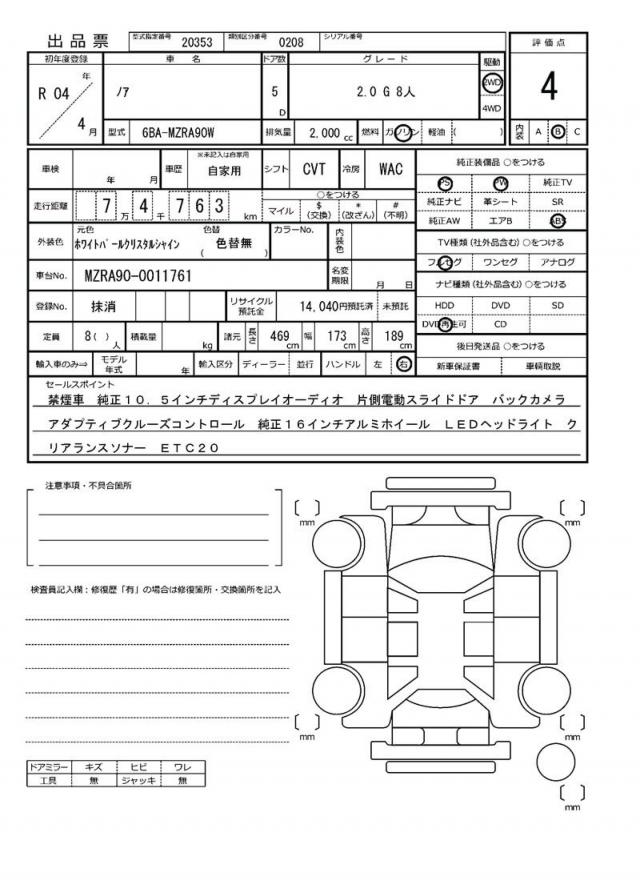 出品票 型式指定番号 20353 類別区分番号 0208 シリアル番号
初年度登録 車名 ドア数 グレード 駆動 評価点
R 04 年 4 月 ノア 5 D 2.0 G 8人 2WD 4WD 4
型式 6BA-MZRA90W 排気量 2,000 cc 燃料 ガソリン 軽油 ( ) 内装 A B C
車検 年 月 車歴 ※未記入は自家用 自家用 シフト CVT 冷房 WAC 純正装備品 ○をつける
PS PW 純正TV
走行距離 7 万 4 千 7 6 3 km ○をつける マイル $ (交換) * (改ざん) # (不明) 純正ナビ 革シート SR
純正AW エアB ABS
外装色 元色 ホワイトパールクリスタルシャイン 色替 ( 色替無 ) カラーNo. 内装色 TV種類 (社外品含む) ○をつける
フルセグ ワンセグ アナログ
車台No. MZRA90-0011761 名変期限 月 日 ナビ種類 (社外品含む) ○をつける
登録No. 抹消 リサイクル預託金 14,040円預託済 未預託 HDD DVD SD
DVD再生可 CD
定員 8( ) 人 積載量 kg 諸元 長さ 469 cm 幅 173 cm 高さ 189 cm 後日発送品 ○をつける
輸入車のみ⇒ モデル年式 年 輸入区分 ディーラー 並行 ハンドル 左 右 新車保証書 車輌取説
セールスポイント
禁煙車 純正10.5インチディスプレイオーディオ 片側電動スライドドア バックカメラ
アダプティブクルーズコントロール 純正16インチアルミホイール LEDヘッドライト ク
リアランスソナー ETC20
注意事項・不具合箇所
検査員記入欄：修復歴「有」の場合は修復箇所・交換箇所を記入
ドアミラー キズ ヒビ ワレ
工具 無 ジャッキ 無
[ ] mm
[ ] mm
[ ] mm
[ ] mm
[ ] mm